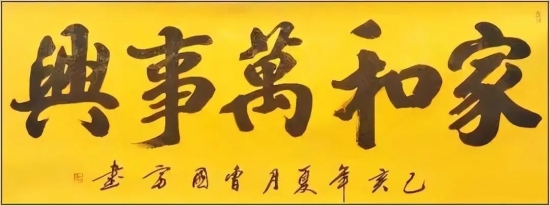 家和萬事興
己亥年夏月曾國富書